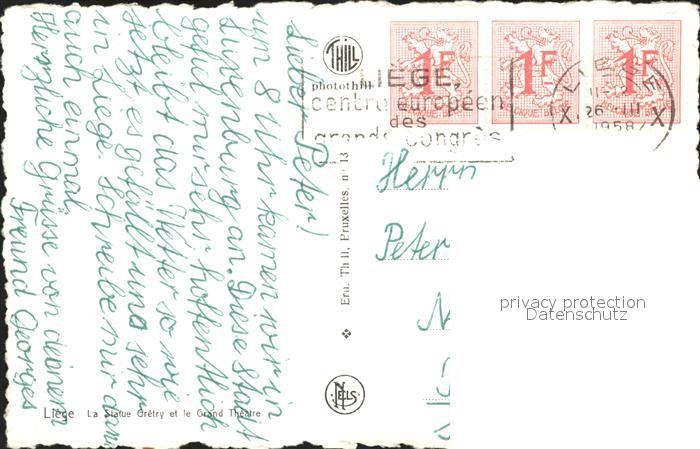 Lieber Peter!
Um 8 Uhr kamen wir in
Luxenburg an. Diese Stadt
gefiel mir sehr hoffentlich
bleibt das Wetter so wie
jetzt es gefällt uns sehr
in Liege. Schreibe mir dann
auch einmal
Herzliche Grüsse von deinem
Freund Georges
Liège La Statue Grétry et le Grand Théatre
THILL
photothill
Ern. Thill, Bruxelles. n° 13
NELS
1F
BELGIQUE
1F
BELGIQUE
1F
BELGIQUE
LIEGE,
centre européen
des
grands congrès
LIEGE
26 III
1958
X X
Herrn
Peter
privacy protection
Datenschutz